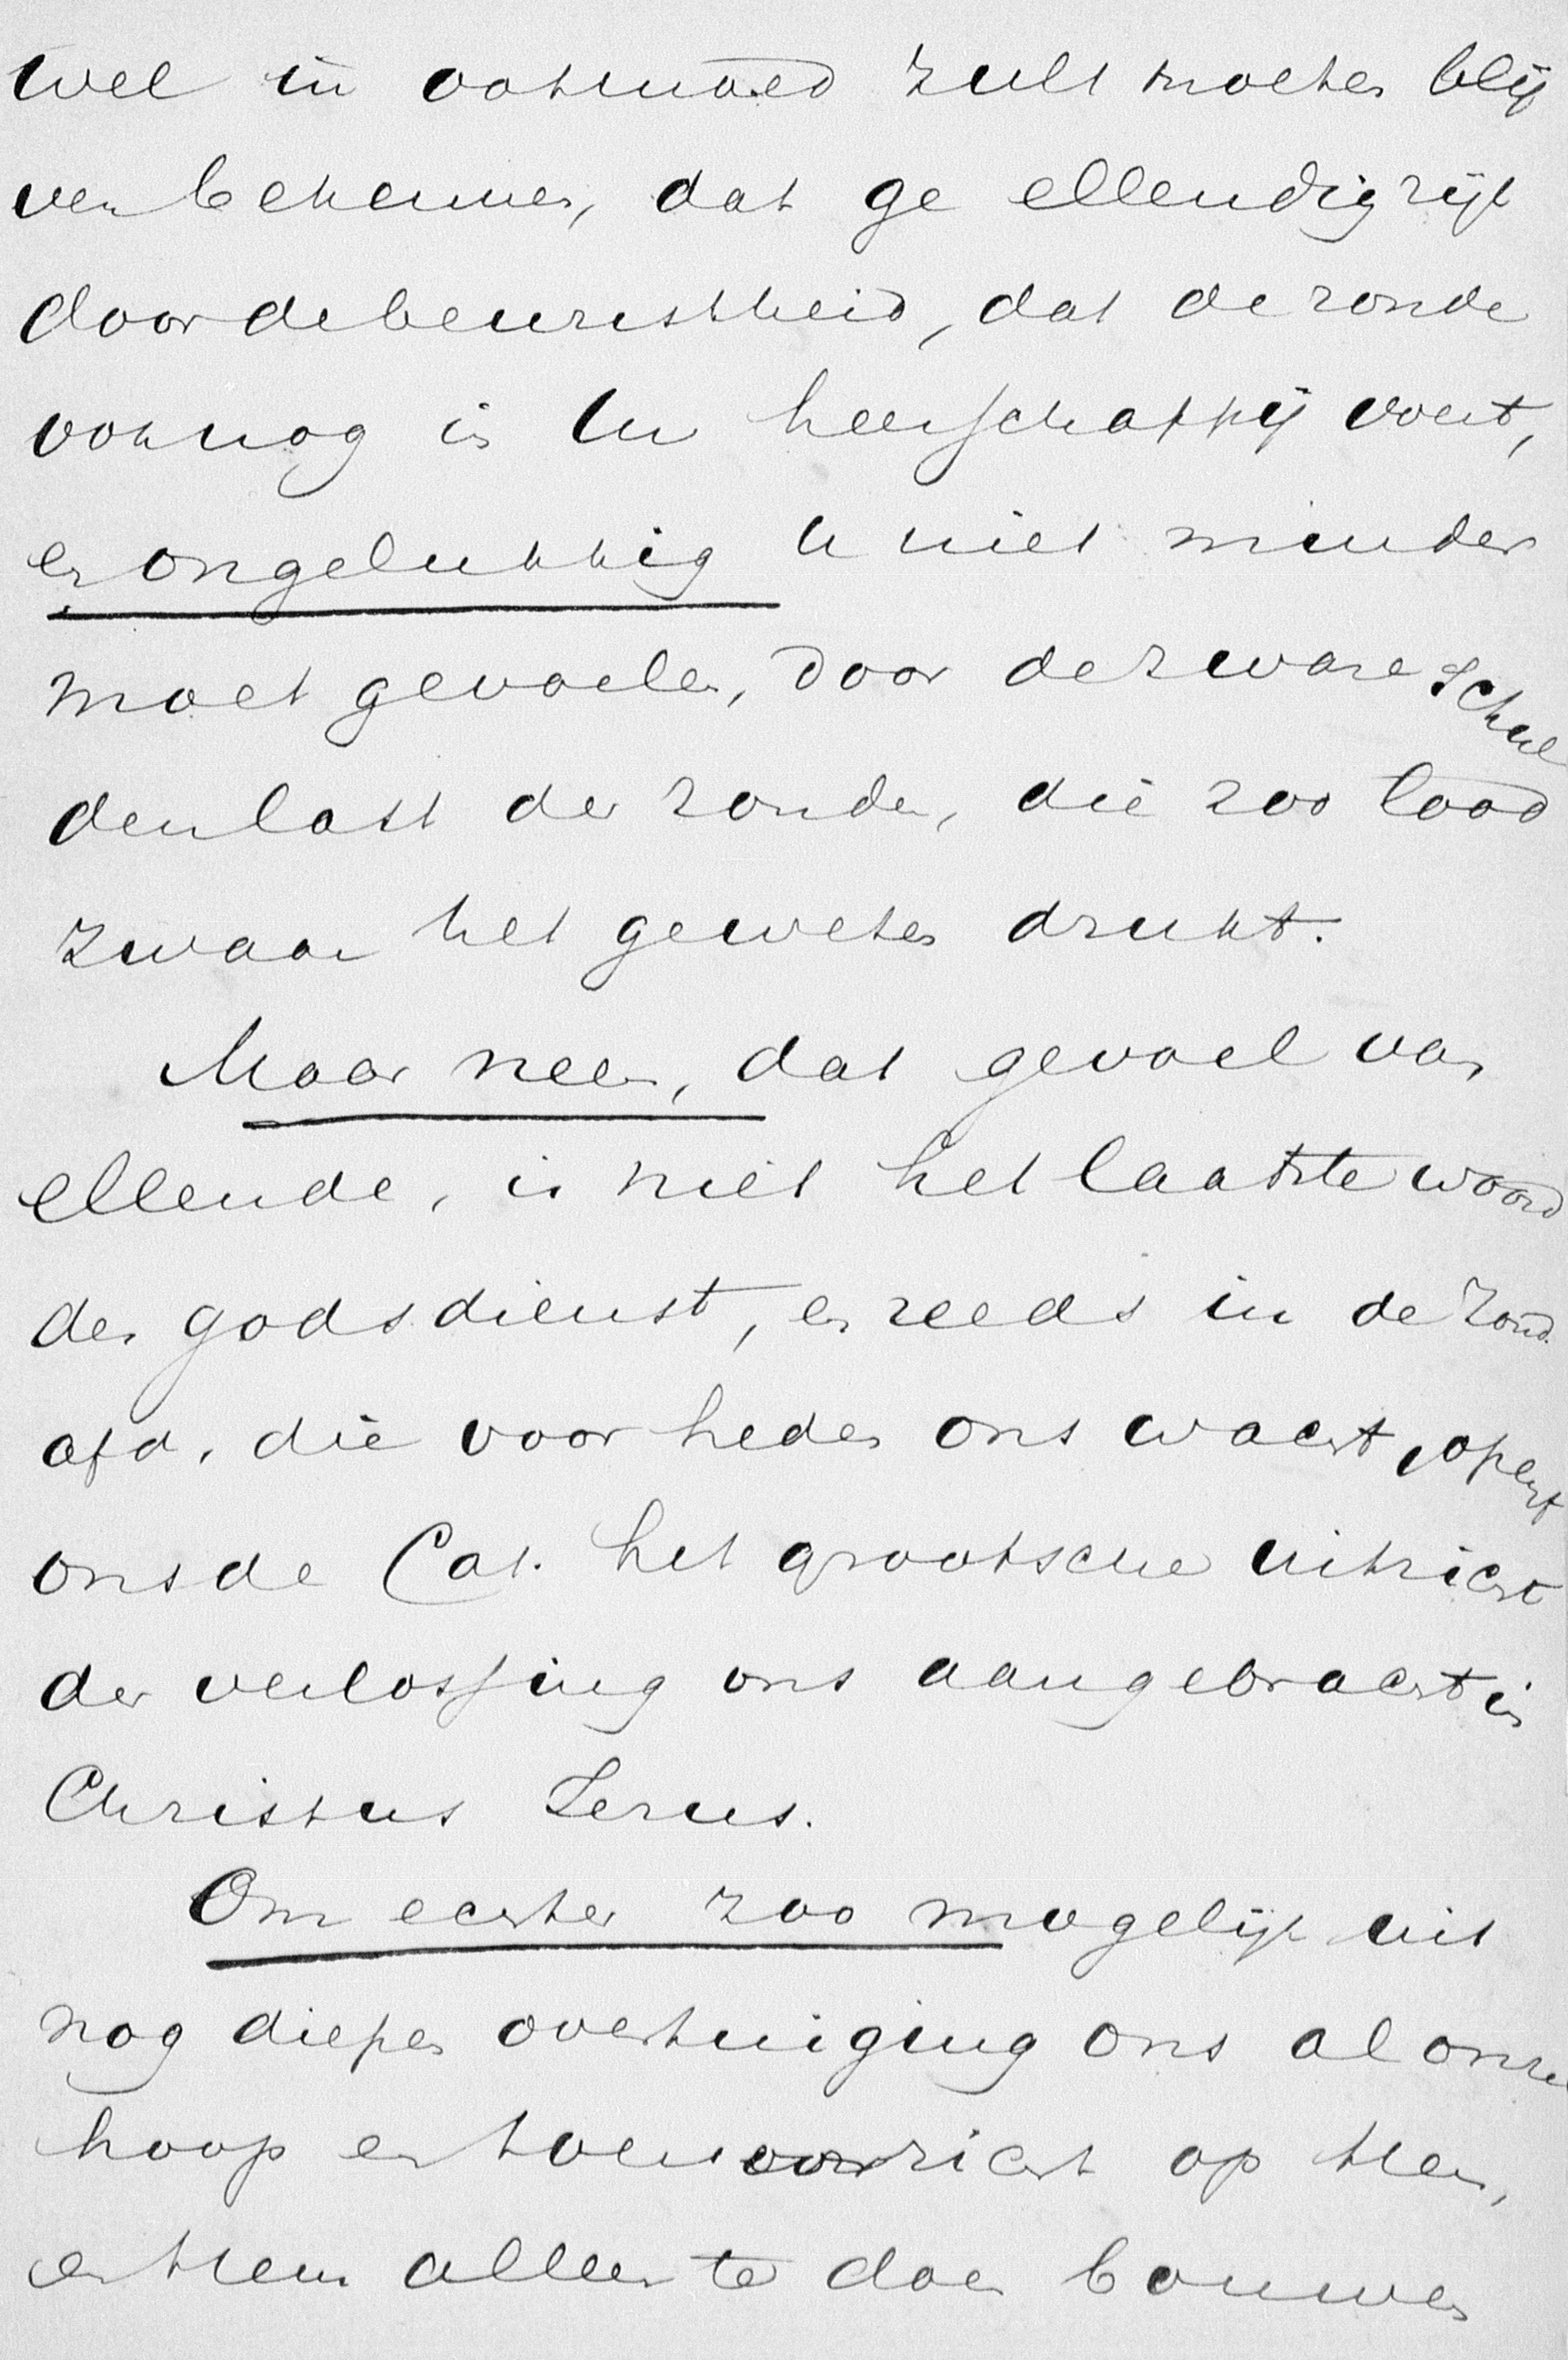 wel in ootmoed zult moeten blij
ven bekennen, dat ge ellendig zijt
door de bewustheid, dat de zonde
ook nog in Uw heerschappij voert,
en ongelukkig U niet minder
moet gevoelen, door de zware schul
denlast der zonden, die zoo lood
zwaar het geweten drukt.
Maar neen, dat gevoel van
ellende, is niet het laatste woord
der godsdienst, en reeds in de Zond.
afd. die voor heden ons wacht, opent
ons de Cat. het grootsche uitzicht
der verlossing ons aangebracht in
Christus Jezus.
Om echter zoo mogelijk uit
nog dieper overtuiging ons al onze
hoop en toevoorzicht op Hem,
en Hem alleen te doen bouwen